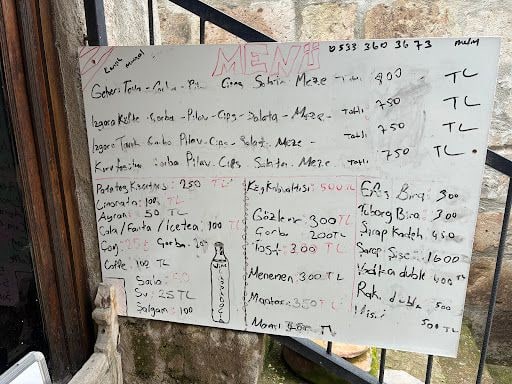 MENÜ
0533 360 3673
Çorba - Pilav Cips Salata Meze - Tatlı 800 TL
Izgara Köfte Çorba - Pilav - Cips - Salata - Meze - Tatlı 750 TL
Izgara Tavuk Çorba Pilav - Cips - Salata Meze - Tatlı 750 TL
Çorba Pilav - Cips Salata Meze - Tatlı 750 TL
Patates Kızartması: 250 TL
Limonata: 100 TL
Ayran: 50 TL
Cola / Fanta / Icetea 100 TL
Çay: 25 ₺ Çorba
Coffe: 100 TL
Soda: 50
Su: 25 TL
Şalgam: 100
Köy Kahvaltısı: 500 TL
Gözleme 300 TL
Çorba 200 TL
Tost: 300 TL
Menemen 300 TL
Mantar: 350 TL
TL
Efes Bira: 300
Tuborg Bira: 300
Şarap Kadeh: 450
Şarap Şişe: 1600
Vodka duble 400 TL
Rakı duble 500
500 TL